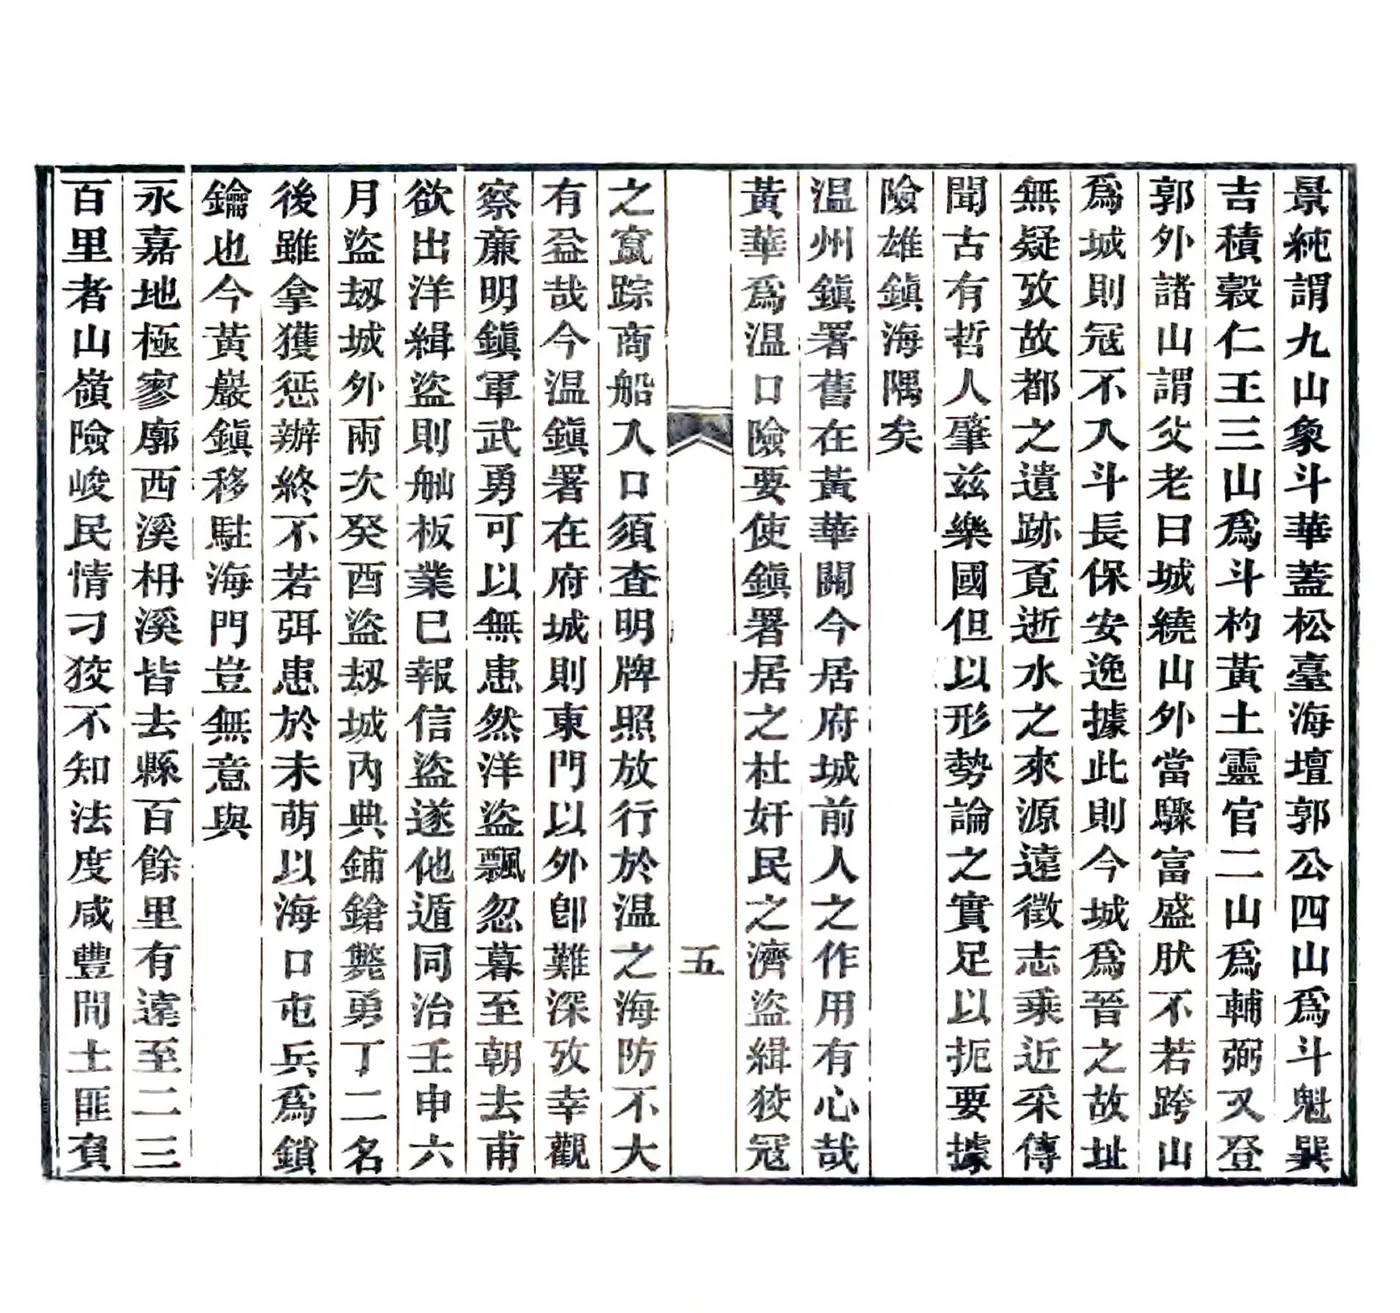 景純謂九山象斗華蓋松臺海壇郭公四山爲斗魁巽
吉積穀仁王三山爲斗杓黃土靈官二山爲輔弼又登
郭外諸山謂父老曰城繞山外當驟富盛肰不若跨山
爲城則冦不入斗長保安逸據此則今城爲晉之故址
無疑攷故都之遺跡覔逝水之來源遠徵志乘近采傳
聞古有哲人肇兹樂國但以形勢論之實足以扼要據
險雄鎭海隅矣
温州鎭署舊在黃華關今居府城前人之作用有心哉
黃華爲温口險要使鎭署居之杜奸民之濟盜緝狡冦
五
之竄踪商船入口須查明牌照放行於温之海防不大
有益哉今温鎭署在府城則東門以外卽難深攷幸觀
察廉明鎭軍武勇可以無患然洋盜飄忽暮至朝去甫
欲出洋緝盜則舢板業巳報信盜遂他遁同治壬申六
月盜刼城外兩次癸酉盜刼城內典鋪鎗斃勇丁二名
後雖拿獲惩辦終不若弭患於未萌以海口屯兵爲鎖
鑰也今黃巖鎭移駐海門豈無意與
永嘉地極寥廓西溪枏溪皆去縣百餘里有遠至二三
百里者山嶺險峻民情刁狡不知法度咸豐間土匪負